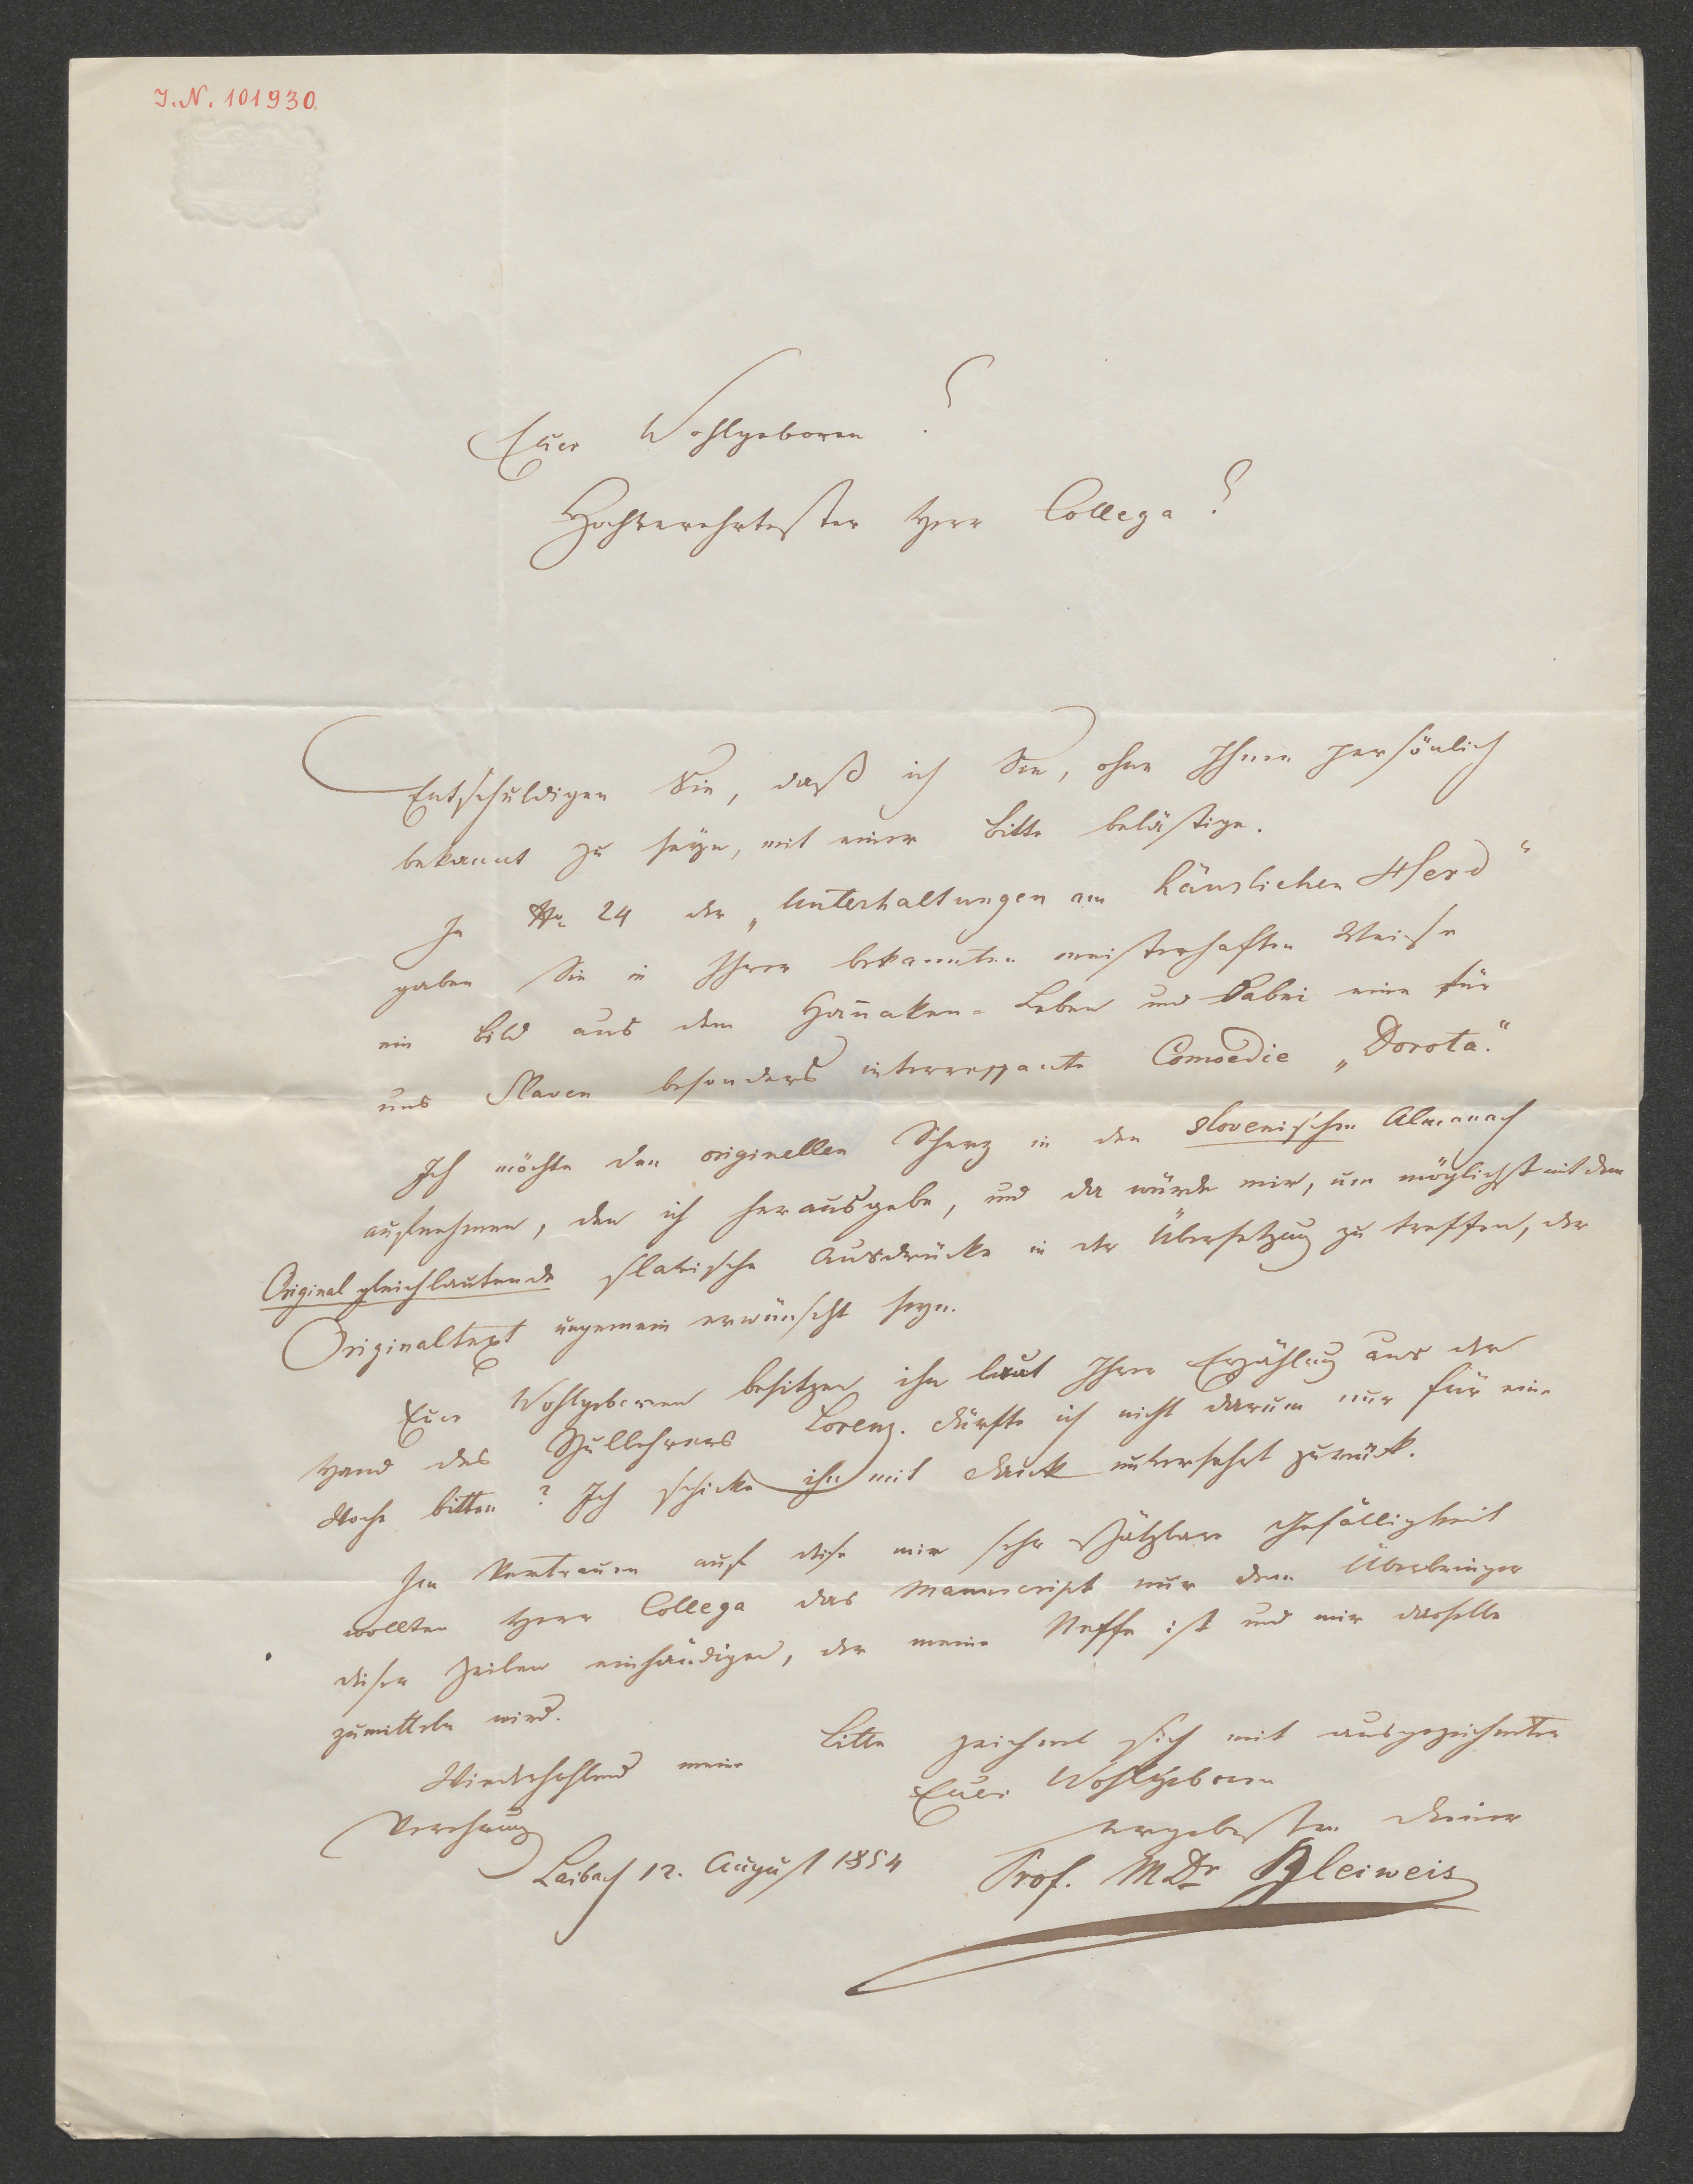 I.N. 101930.
Euer Wohlgeboren!
Hochverehrtester Herr Collega!
Entschuldigen Sie, daß ich Sie, ohne Ihnen persönlich
bekannt zu seyn, mit einer Bitte belästige.
In No 24 der „Unterhaltungen am häuslichen Herd"
gaben Sie in Ihrer bekannten meisterhaften Weise
ein Bild aus dem Hannaken-Leben und dabei eine für
uns Slaven besonders interressante Comoedie „Dorota."
Ich möchte den originellen Scherz in den slovenischen Almanach
aufnehmen, den ich herausgebe, und da würde mir, um möglichst mit dem
Original gleichlautende slavische Ausdrücke in der Übersetzung zu treffen, der
Originaltext ungemein erwünscht seyn.
Euer Wohlgeboren besitzen ihn laut Ihrer Erzählung aus der
Hand des Schullehrers Lorenz. Dürfte ich nicht darum nur für eine
Woche bitten? Ich schicke ihn mit Dank unversehrt zurück.
Im Vertrauen auf diese mir sehr schätzbare Gefälligkeit
wollten Herr Collega das Manuscript nur dem Überbringer
dieser Zeilen einhändigen, der mein Neffe ist und mir dasselbe
zumitteln wird.
Wiederhohlend meine Bitte zeichnet sich mit ausgezeichneter
Verehrung Euer Wohlgeboren
ergebenster Diener
Laibach 12. August 1854 Prof. MDr Bleiweis